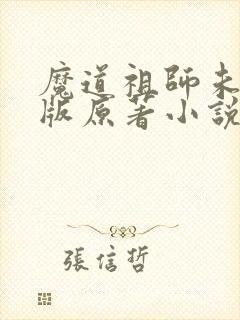 魔道祖師未
版原著小說
張信哲